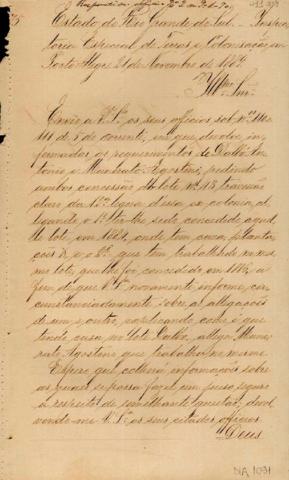 Estado do Rio Grande do Sul. Inspe-
toria Especial de Terras e Colonisação em
Porto Alegre 21 de Novembro de 1889
Illmo Snr.
Envio a V. Sª os seus officios sob nos 110 e
111 de 5 do corrente, em que devolve in-
formados os requerimentos de Dalbó An-
tonio e Munerato Agostino, pedindo
ambos concessão do lote nº 18, travessão
da legua d'essa ex-colonia, al-
legando o 1º ter-lhe sido concedido aquel-
le lote, em 1884, onde tem casa, planta-
ções & e o 2º que tem trabalhado no mes-
mo lote, que lhe foi concedido em a
fim de que V. Sª novamente informe, cir-
cumstanciadamente sobre as allegações
de um e outro, explicando como é que
tendo casa no lote Dalbó, allega Mune-
rato Agostino que trabalha no mesmo.
Espero que colherá informações sobre
as quaes se possa fazer um juizo seguro
a respeito de semelhante questão, devol-
vendo-me V. Sª os seus citados officios.
Deus
NA 1091